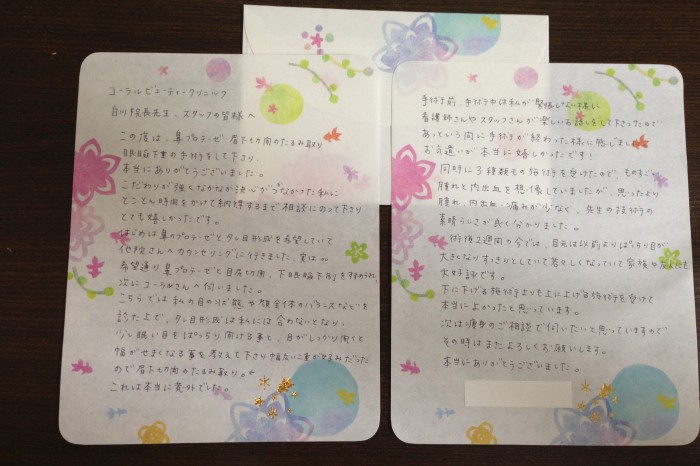 コーラルビューティークリニック
白川院長先生、スタッフの皆様へ
この度は、鼻プロテーゼ、眉下切開のたるみ取り
眼瞼下垂の手術をして下さり
本当にありがとうございました。
こだわりが強くなかなか決心がつかなかった私に
とことん時間をかけて納得するまで相談にのって下さり
とても嬉しかったです。
はじめは鼻のプロテーゼとタレ目形成を希望していて
他院さんへカウンセリングに行きました。実は
希望通り鼻プロテーゼと目尻切開、下眼瞼下制をすすめられ、
次にコーラルさんへ伺いました。
こちらでは私の目の状態や顔全体のバランスなどを
診た上で、タレ目形成は私には合わないでなく、
少し眠い目をぱっちり開ける事と、目がしっかり開くと
幅がせまくなる事を教えて下さり幅広い二重が好みだった
ので眉下切開のたるみ取り。
これは本当に意外でした。
手術前、手術中は私が緊張しない様に
看護師さんやスタッフさんが楽しいお話しをして下さったので
あっという間に手術が終わった様に感じました
お気遣いが本当に嬉しかったです!
同時に3種類もの施術を受けたので、ものすごく
腫れて内出血を想像していましたが、思ったより
腫れ、内出血、痛みが少なく、先生の技術の
素晴らしさが良く分かりました。
術後2週間の今では、目元は以前よりぱっちり目が
大きくなりすっきりとしていて若々しくなっていて家族や友人にも
大好評です。
下に下げる施術よりも上に上げる施術を受けて
本当によかったと思っています。
次は痩身のご相談で伺いたいと思っていますので
その時はまたよろしくお願いします。
本当にありがとうございました。